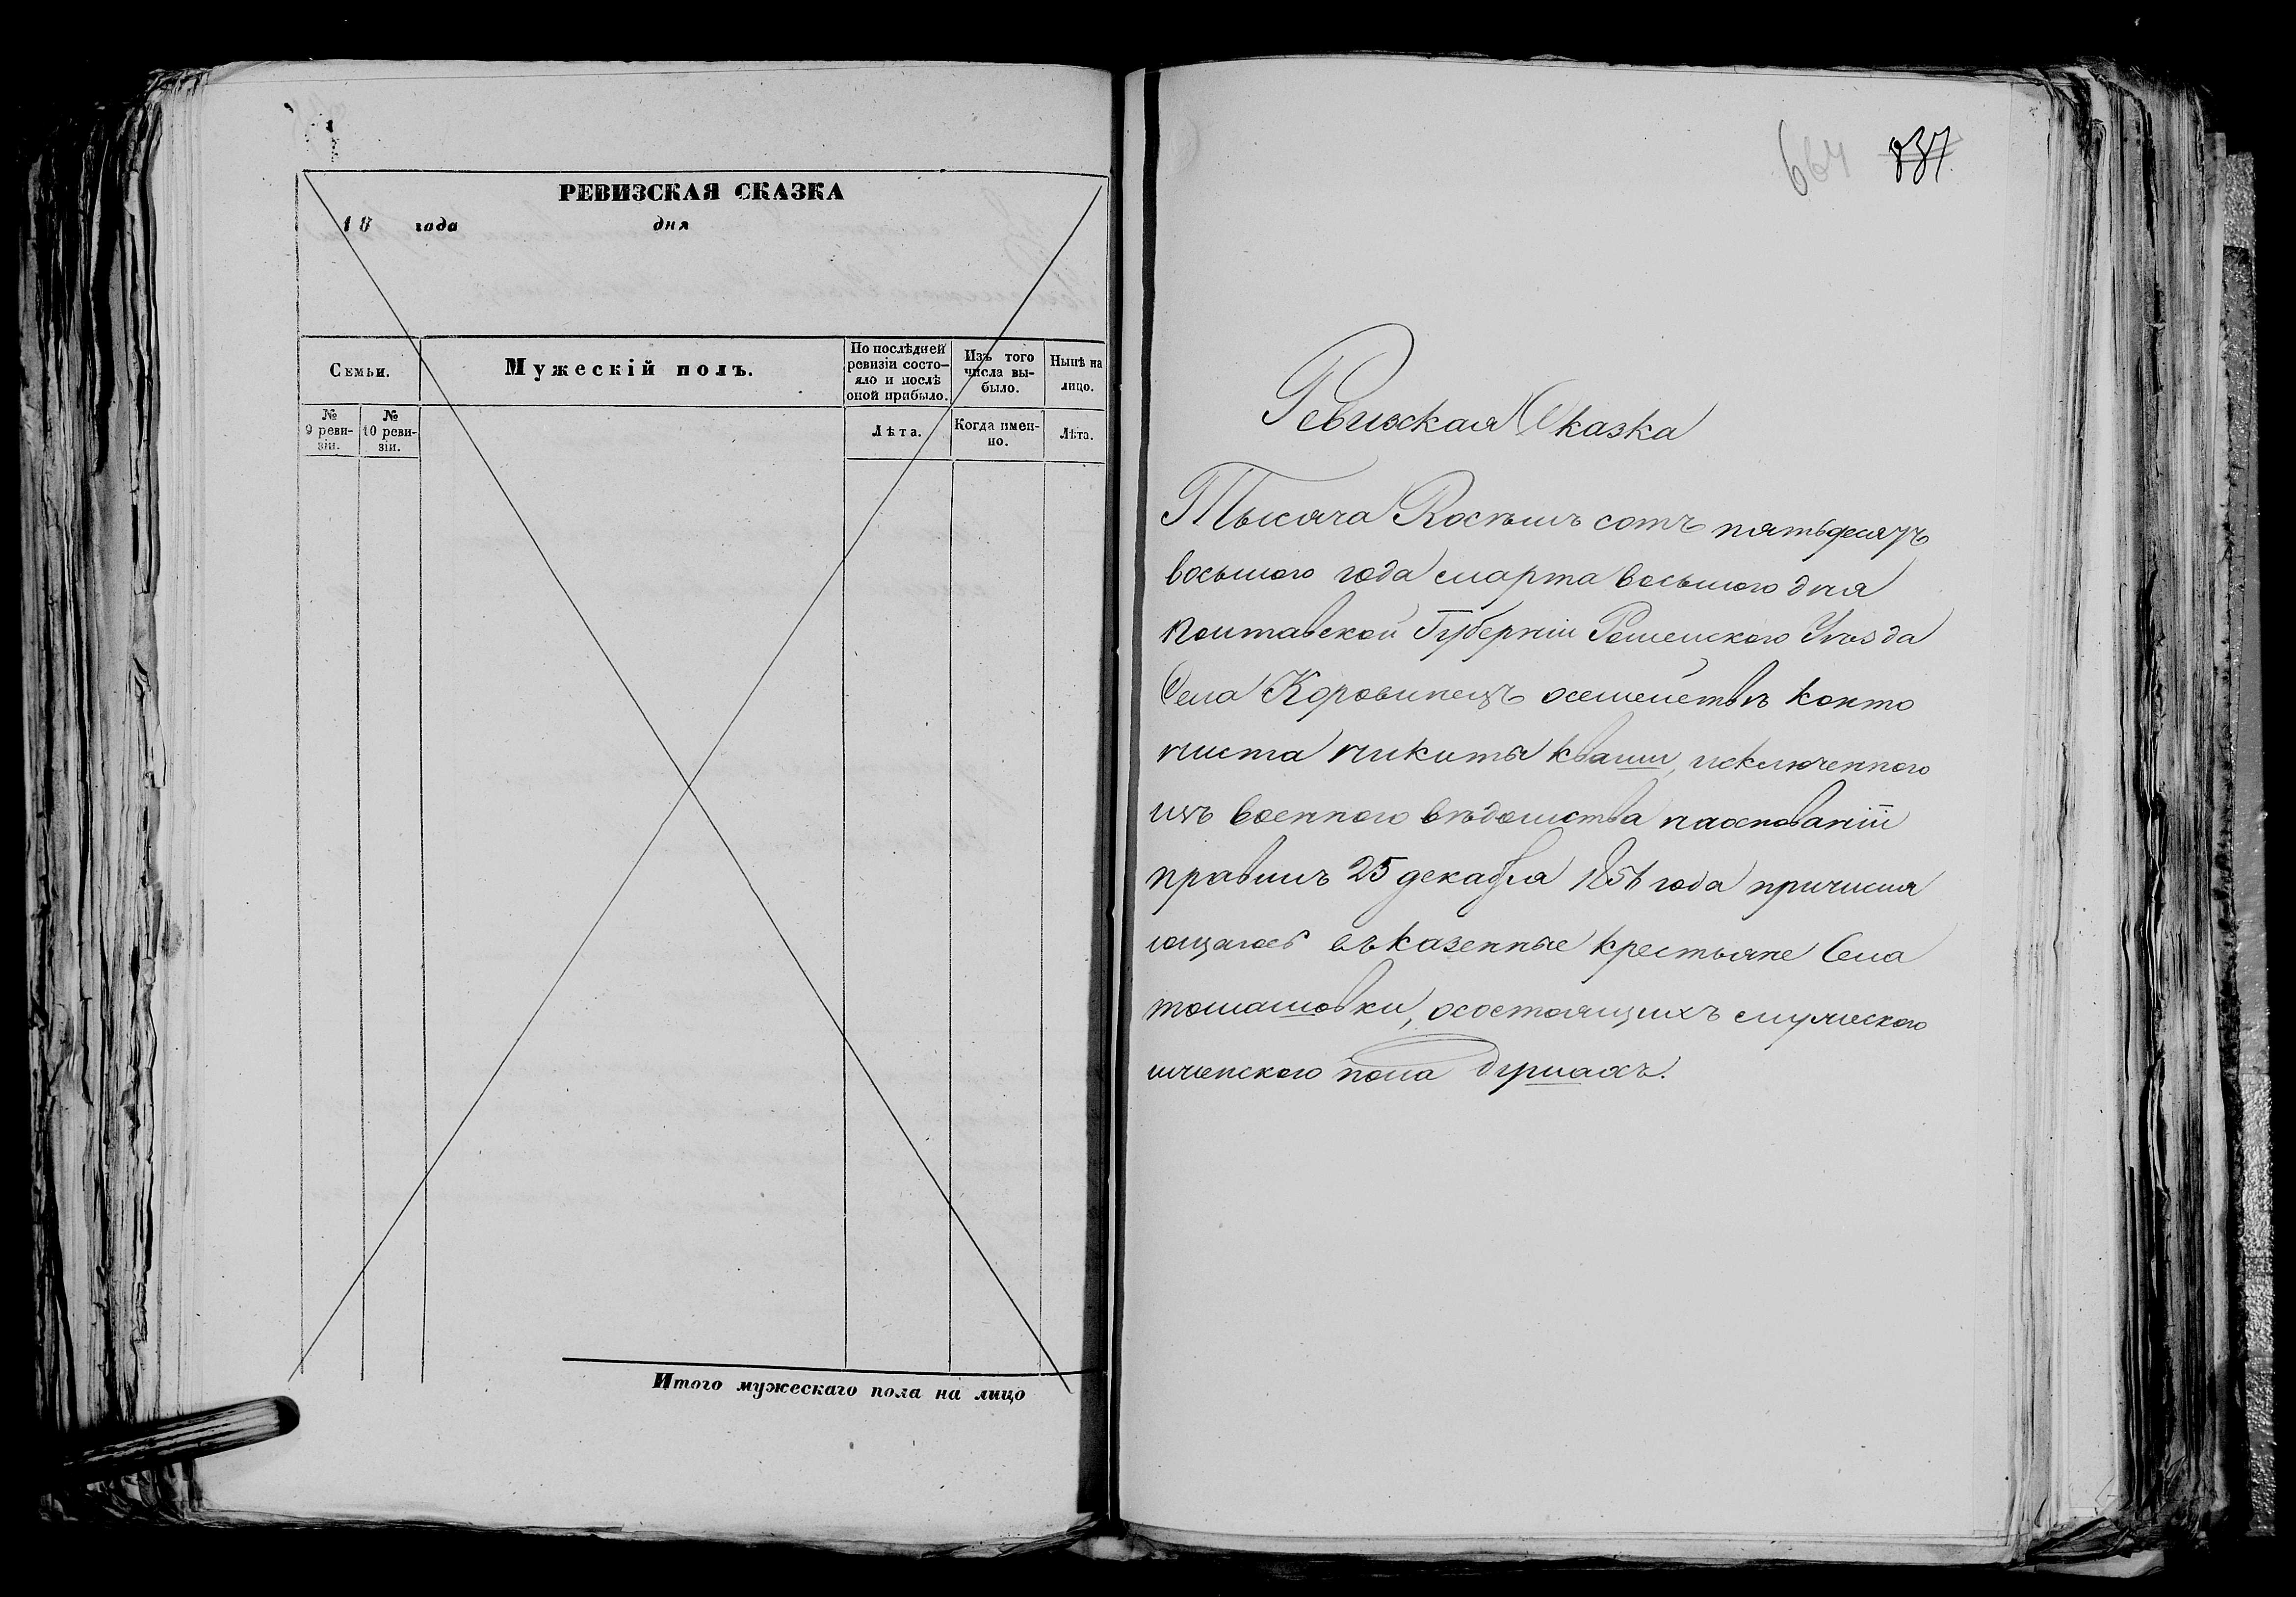 РЕВИЗСКАЯ СКАЗКА
18 года дня
Семьи.
Мужескій полъ.
По послѣдней
ревизіи состо-
яло и послѣ
оной прибыло.
Изъ того
числа вы-
было.
Нынѣ на
лицо.
№
9 реви-
зіи.
№
10 реви-
зіи.
Лѣта.
Когда имен-
но.
Лѣта.
Итого мужескаго пола на лицо
664 837
Ревизская Сказка
Тысяча Восѣмъ сотъ пятьдесятъ
восьмого года марта восьмого дня
Полтавской Губерніи Роменского Уѣзда
Села Коровинецъ осемействѣ канто
ниста никиты кваши, исключенного
изъ военного вѣдомства наоснованіи
правилъ 25 декабря 1856 года причисля
ющагось въ казенные крестьяне Села
томашовки, осостоящихъ мужеского
иженского пола душахъ.